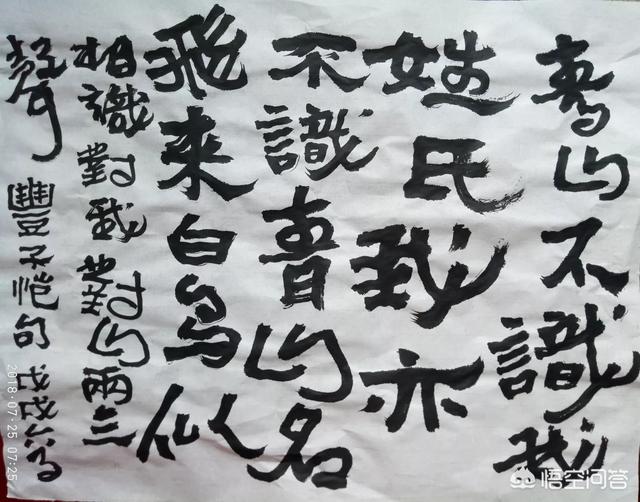 青山不識我
姓氏我亦
不識青山名
飛來白鳥似
相識對我對山兩三
聲 豐子愷句 戊戌
2018-07-25 07:25
悟空问答